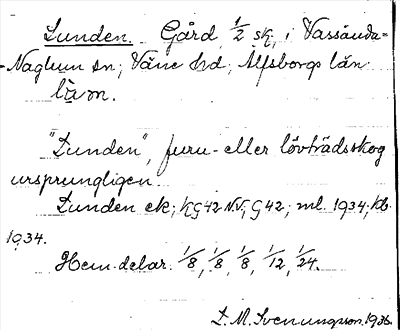 Lunden. Gård, 1/2 sk, i Vassända-
-Naglum sn; Väne hd; Älfsborgs län.
"Lunden", furu- eller lövträdsskog
ursprungligen.
Lunden ek; KG42 N.V; G42; ml. 1934; kb
1934.
Hem.delar. 1/8, 1/8, 1/8, 1/12, 1/24.
L. M. Svenungsson. 1936.